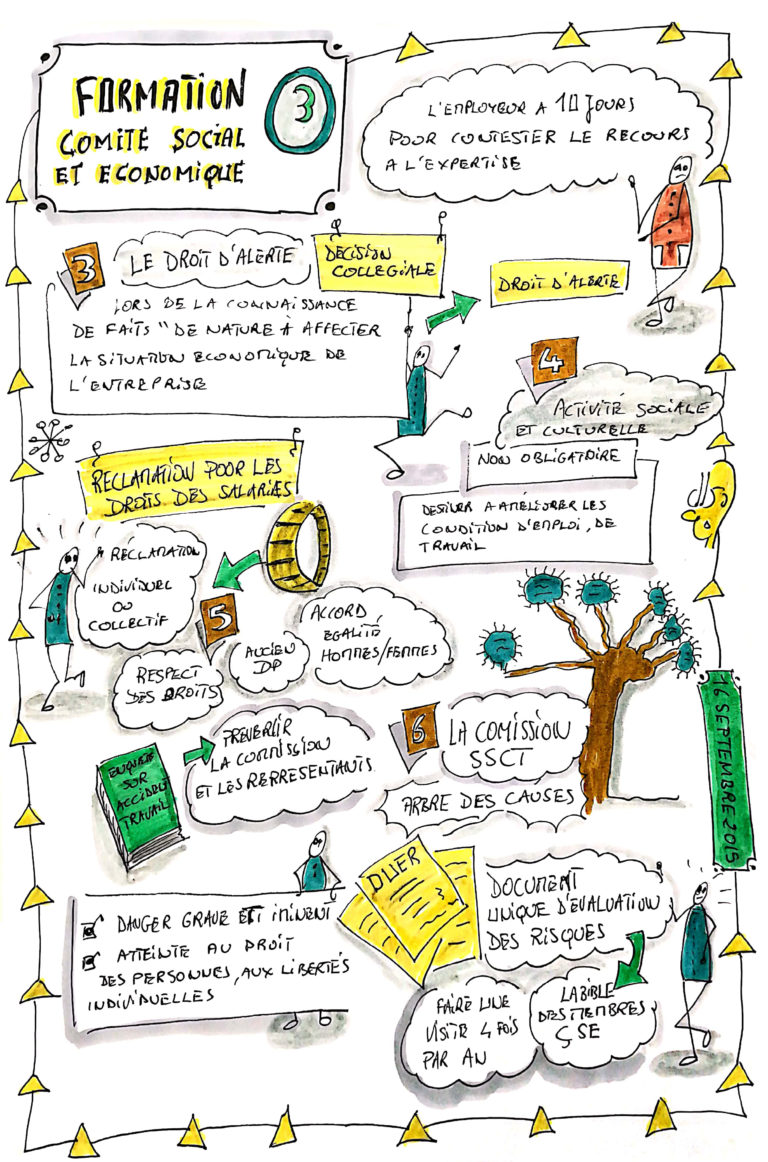 FORMATION
COMITE SOCIAL
ET ECONOMIQUE
3
L'EMPLOYEUR A 10 JOURS
POUR CONTESTER LE RECOURS
A L'EXPERTISE
3
LE DROIT D'ALERTE
DECISION
COLLEGIALE
LORS DE LA CONNAISSANCE
DE FAITS "DE NATURE À AFFECTER
LA SITUATION ECONOMIQUE DE
L'ENTREPRISE
DROIT D'ALERTE
4
ACTIVITÉ SOCIALE
ET CULTURELLE
NON OBLIGATOIRE
DESTINER A AMÉLIORER LES
CONDITION D'EMPLOI, DE
TRAVAIL
RECLAMATION POUR LES
DROITS DES SALARIÉS
RÉCLAMATION
INDIVIDUEL
OU
COLLECTIF
5
RESPECT
DES DROITS
ANCIEN
DP
ACCORD
EGALITÉ
HOMMES/FEMMES
6
LA COMISSION
SSCT
ARBRE DES CAUSES
ENQUETE
SUR
ACCIDENT
TRAVAIL
PREVENIR
LA COMMISSION
ET LES REPRESENTANTS
16 SEPTEMBRE 2019
DANGER GRAVE ET IMINENT
ATTEINTE AU DROIT
DES PERSONNES, AUX LIBERTÉS
INDIVIDUELLES
DUER
DOCUMENT
UNIQUE D'EVALUATION
DES RISQUES
FAIRE UNE
VISITE 4 FOIS
PAR AN
LA BIBLE
DES MEMBRES
CSE